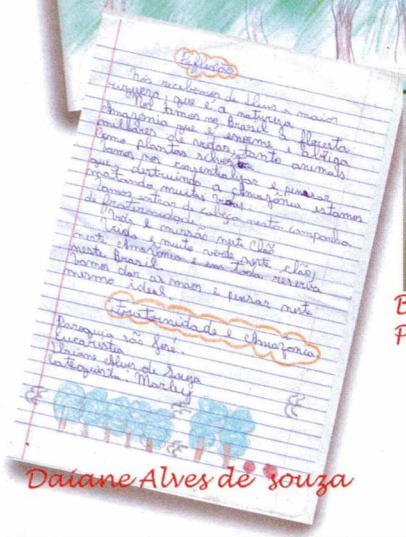 Reflexão
Nós recebemos de Deus a maior
riqueza que é a natureza
Nós temos no Brasil a floresta
Amazônia que é enorme e abriga
milhares de vidas, tanto animais
como plantas
Vamos nos conscientizar e pensar
que destruindo a Amazônia estamos
matando muitas vidas
Vamos entrar de cabeça nesta campanha
de fraternidade
Vida e missão neste chão
Vida e muito verde neste chão
neste Amazônia e em toda reserva
neste Brasil.
Vamos dar as mãos e pensar neste
mesmo ideal
Fraternidade e Amazônia
Paroquia são José.
Eucarestia
Daiane Alves de Souza
Catequista: Marly
Daiane Alves de souza